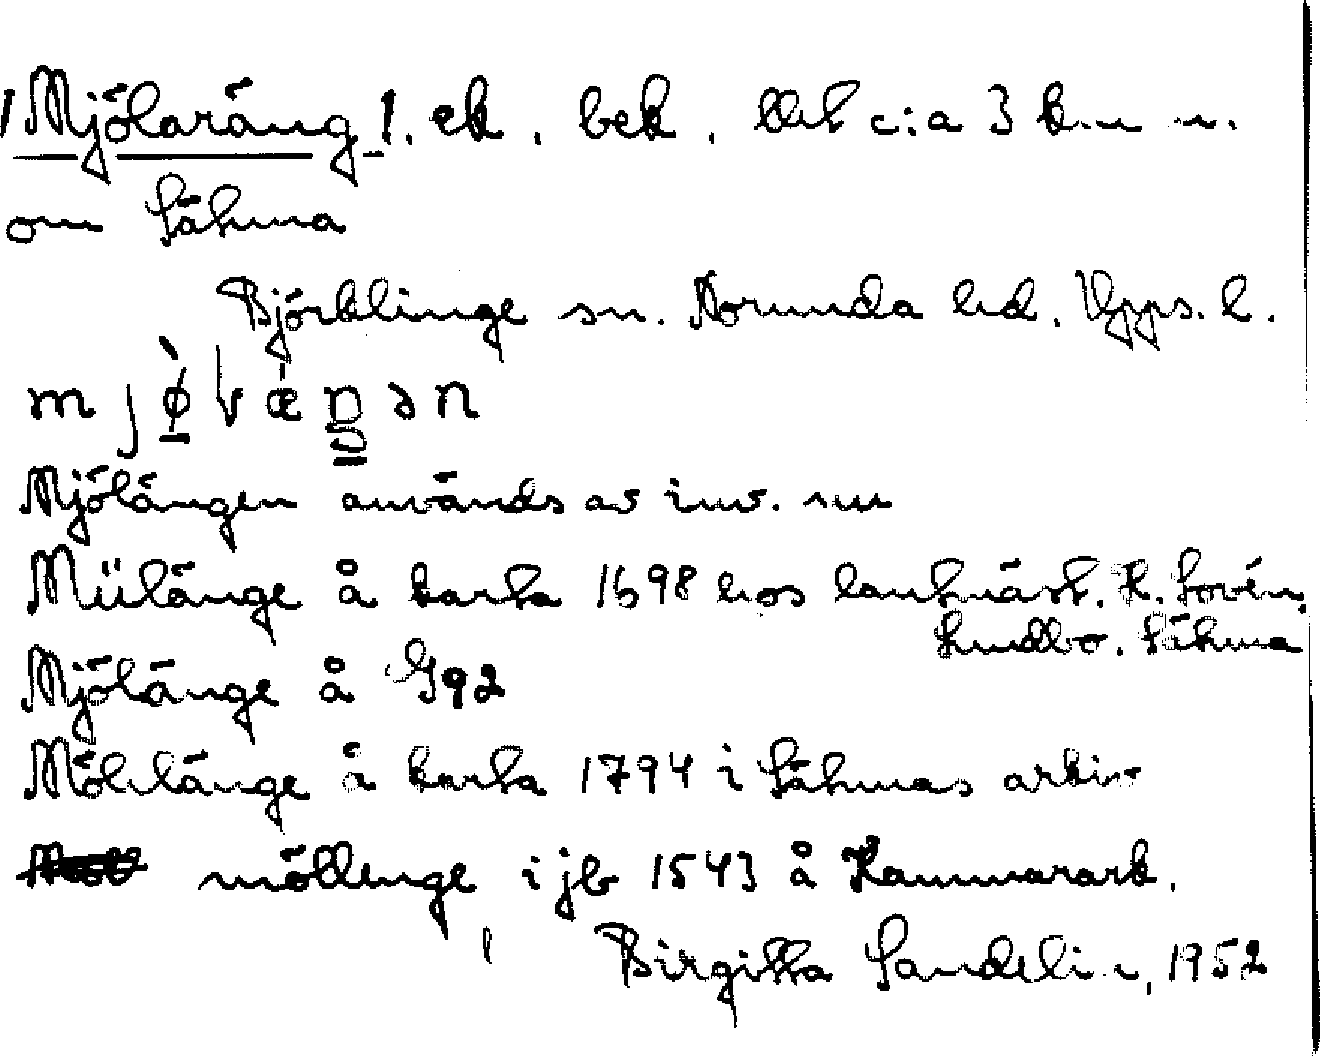 Mjölaräng 1. ek. bek. c:a 3 km n.
om Sätuna
Björklinge sn. Norunda hd. Upps. l.
Mjölängen används av inv. nu
Müլänge å karta 1698 hos lantmäst. K. Lovén,
Lundbo. Sätuna
Mjölänge å G92
Mölnlänge å karta 1794 i Sätunas arkiv
möllenge i jb 1543 å Kammarark.
Birgitta Sandelin, 1952